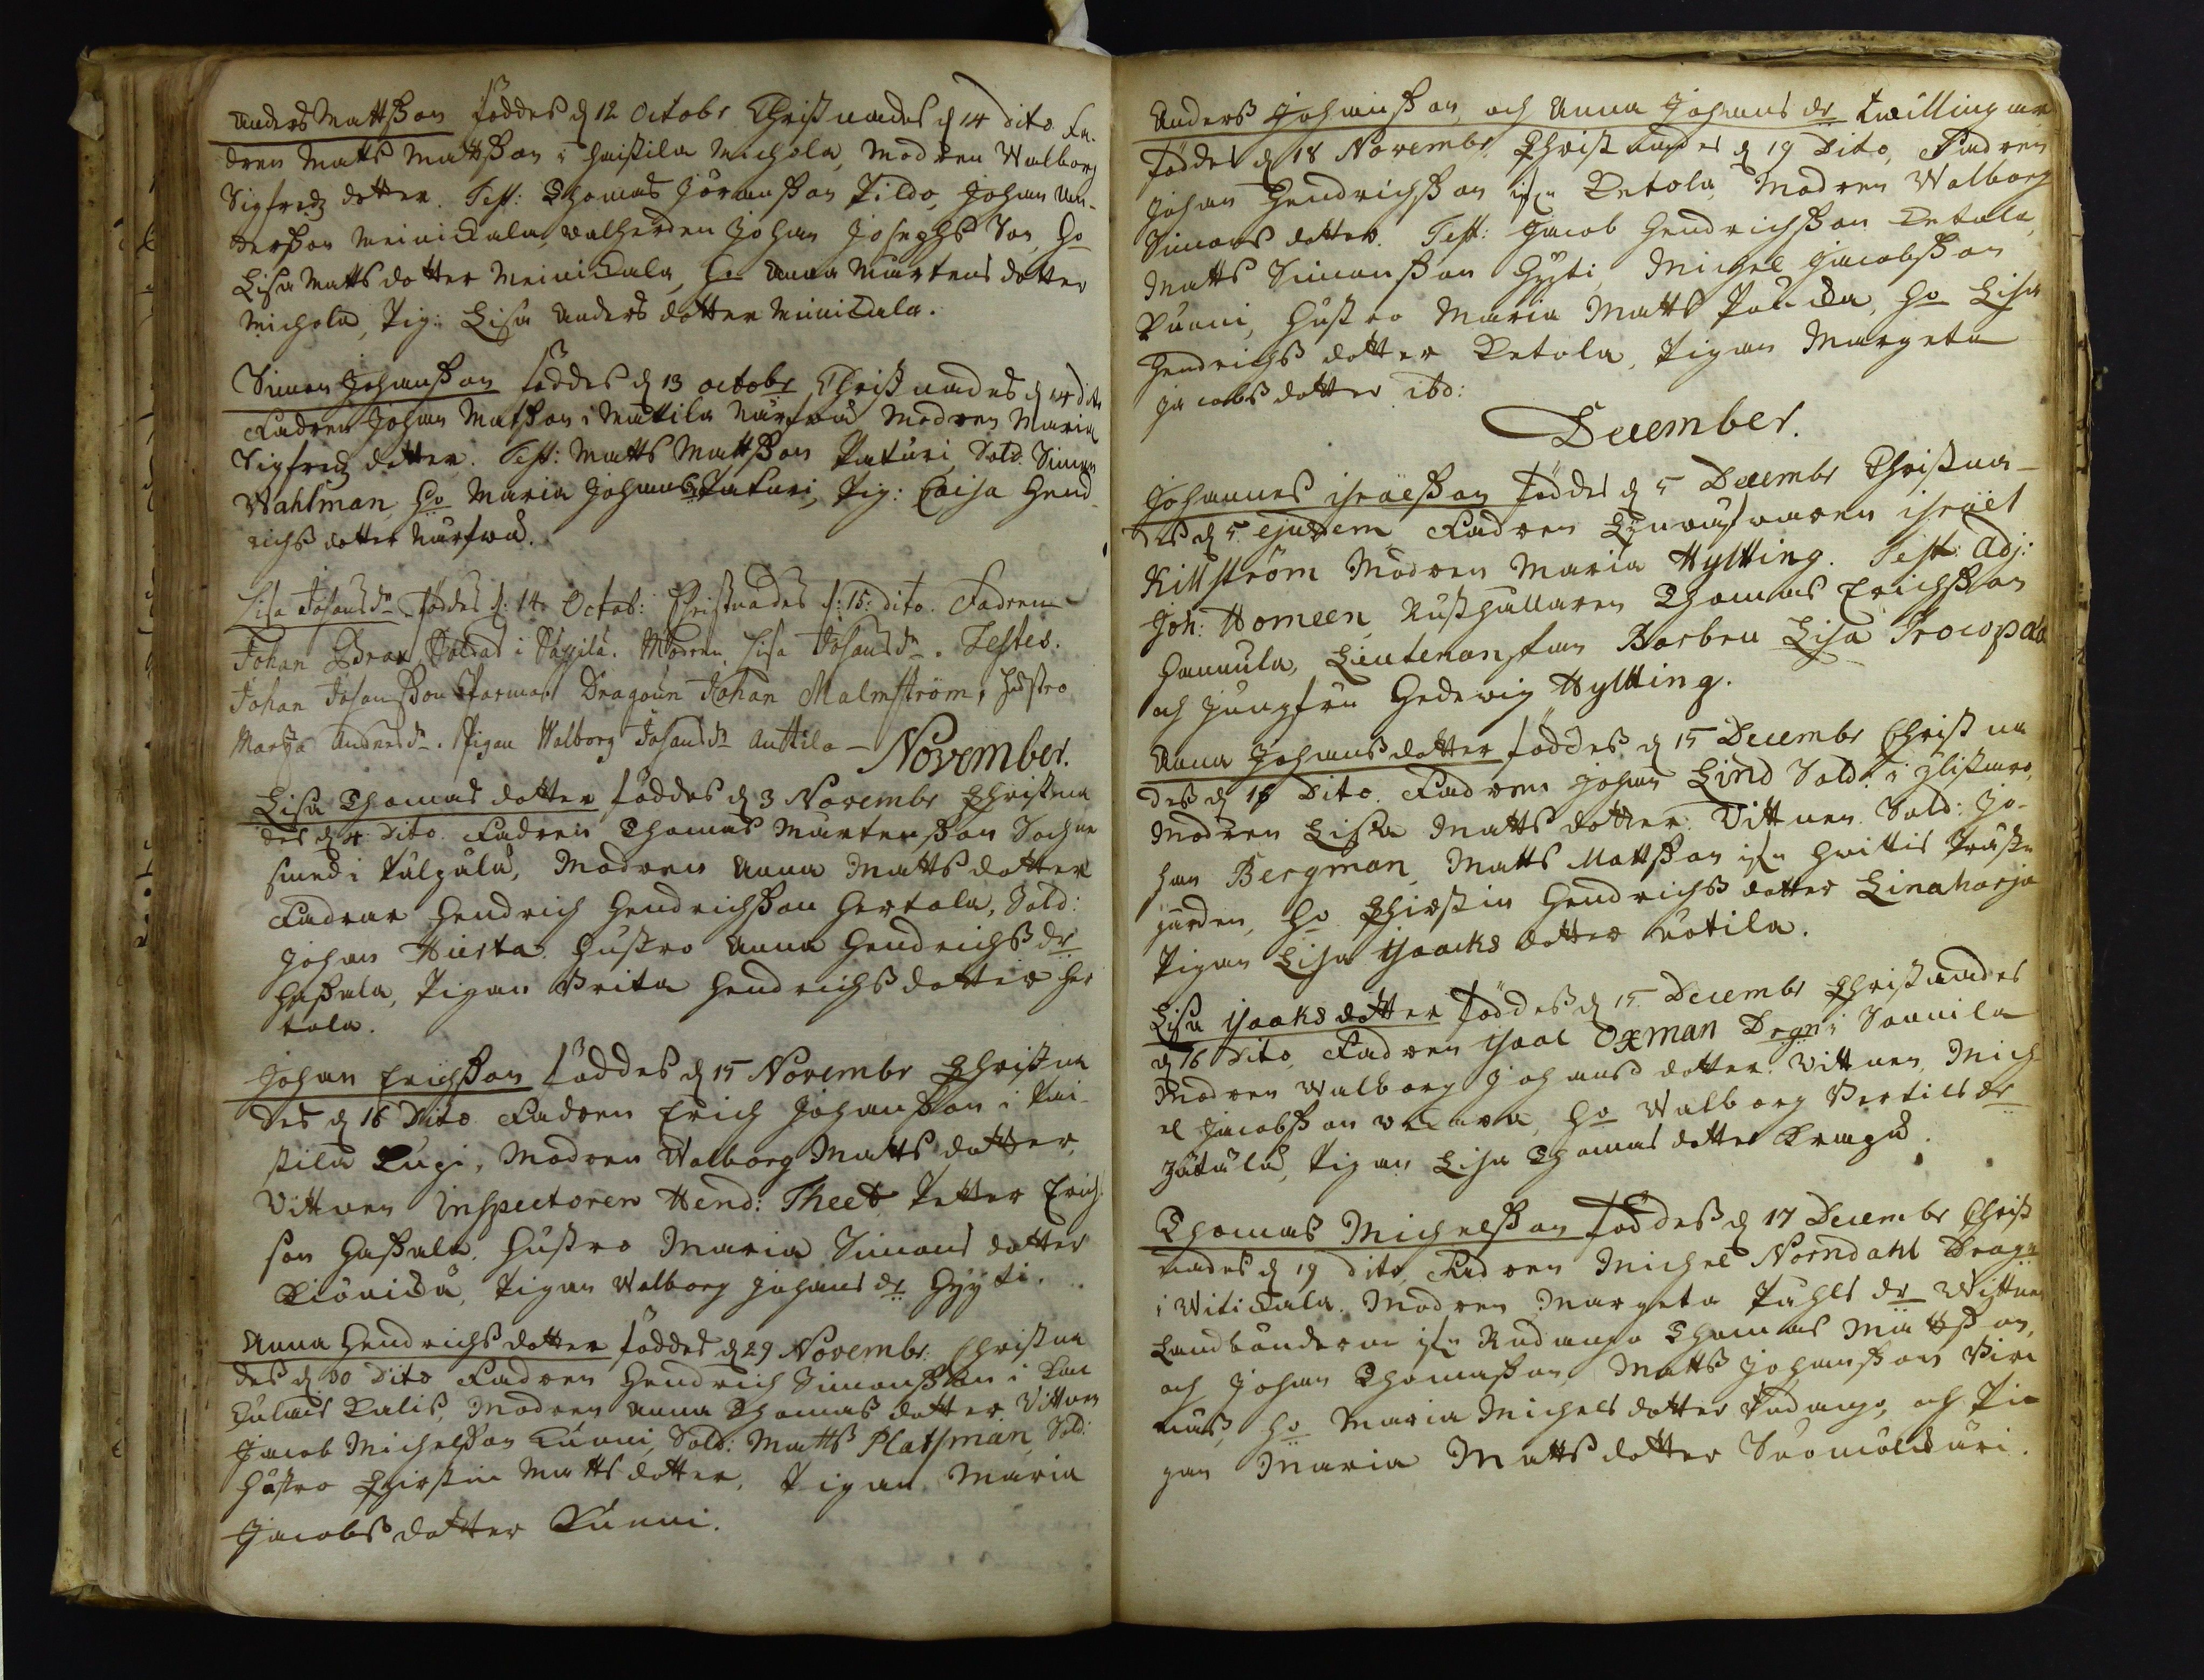 Anders Mattsson föddes d 12 Octobr Christnades d 14 dito Fa-
dren Matts Mattsson i Haistila Michola, Modren Walborg
Sigfredz dotter. Test: Thomas Jöransson Pildo, Johan An-
dersson Meinickala, walherden Johan Josephs Son, Ho
Lisa Matts dotter Meinickala, Ho Anna Mårtens dotter
Michola, Pig: Lisa Anders dotter Meinickala.
Simon Johansson föddes d 13 octobr Christnades d 14 dito
Fadren Johan Matsson i Mattila Nårfwä Modren Maria
Sigfredz dotter. Test: Matts Mattsson Paturi Sold. Simon
Wahlman, Ho Maria Johans dr Paturi, Pig: Caisa Hend-
richs dotter Nårfwä.
Lisa Johansdr. föddes d: 14. Octob: Christnades d: 15: dito. Fadren
Johan Brax Soldat i Säxxilä. Modren Lisa Johansdr. Testes.
Johan Johansson Parma. Dragoun Johan Malmström, Hustro
Marja Andersdr. Pigan Walborg Johansdr Anttila —
November.
Lisa Thomas dotter föddes d 3 Novembr Christna
des d 4 Dito. Fadren Thomas Mårtensson Sochne
smed i Pälpälä, Modren Anna Matts dotter
Fadrar Hendrich Hendrichsson Hertola, Sold:
Johan Hurta. Hustro Anna Hendrichs dr
Hassala, Pigan Brita Hendrichs dotter Her
tola.
Johan Erichsson föddes d 15 Novembr Christna
des d 16 Dito. Fadren Erich Johansson i Pai-
stila Lugi, Modren Walborg Matts dotter,
Vittnen Inspectoren Hend: Theet Petter Erich
son Hassala. Hustro Maria Simons dotter
Kiönickä, Pigan Walborg Johans dr Hyyti.
Anna Hendrichs dotter föddes d 29 Novembr. Christna
des d 30 Dito Fadren Hendrich Simonsson i Lau
culais Kalis, Modren Anna Thomas dotter Vittnen
Jacob Michelsson Cunni, Sold: Matts Platsman Sold:
Hustro Christin Matts dotter, Pigan Maria
Jacobs dotter Kunni.
Anders Johansson, och Anna Johans dr twillingar
föddes d 18 Novembr Christnades d 19 Dito, Fadren
Johan Hendrichsson ifrån Ketola, Modren Walborg
Simons dotter. Test: Jacob Hendrichsson Ketola,
Matts Simonsson Hyyti, Michel Jacobsson
Kunni, Hustro Maria Matts Pancka, Ho Lisa
Hendrichs dotter Ketola, Pigan Margeta
Jacobs dotter ibd:
December.
Johannes israelsson föddes d 5 Decembr Christna-
des d 5 ejusdem Fadren israël
Killström Modren Maria Hylling. Test: Adj:
Joh: Homeen, Rusthållaren Thomas Erichsson
Hannula, Lieutenanskan Barbru Lisa Procopæa
och Jungfru Hedewig Hylling.
Anna Johans dotter föddes d 15 Decembr Christna
des d 16 Dito. Fadren Johan Lind Sold. i Ylistaro,
Modren Lisa Matts dotter. Vittnen Sold: Jo-
han Bergman, Matts Mattsson ifrån Hvittis Präste
gården, Ho Christin Hendrichs dotter Linaharja
Pigan Lisa ysaacks dotter Uotila.
Lisa ysaaks dotter föddes d 15 Decembr Christnades
d 16 Dito, Fadren ysaac Oxman Dragn i Sonnila
Modren Walborg Johans dotter. Vittnen, Mich
el Jacobsson, Ho Walborg Bertils dr
Jätälä, Pigan Lisa Thomas dotter Krapu.
Thomas Michelsson föddes d 17 Decembr Christ
nades d 19 dito, Fadren Michel Norndahl Dragn
i Witickala. Modren Margeta Påhls dr Wittnen
Landbönderne ifrån Rudanpo Thomas Mattsson,
och Johan Thomasson, Matts Johansson Piri
nus, Ho Maria Michels dotter Rudanpo, och Pi-
gan Maria Matts dotter Suomälckäri.